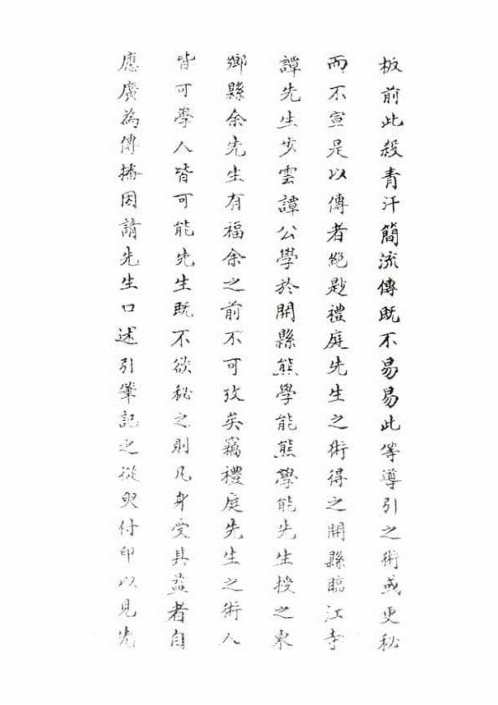 板前此殺青汗簡流傳既不易易此等導引之術或更秘
而不宣是以傳者絕尠禮庭先生之術得之開縣臨江寺
譚先生步雲譚公學於開縣熊學能熊學能先生授之東
鄉縣余先生有福余之前不可攷矣竊禮庭先生之術人
皆可學人皆可能先生既不欲秘之則凡身受其益者自
應廣為傳播因請先生口述引筆記之從臾付印以見先